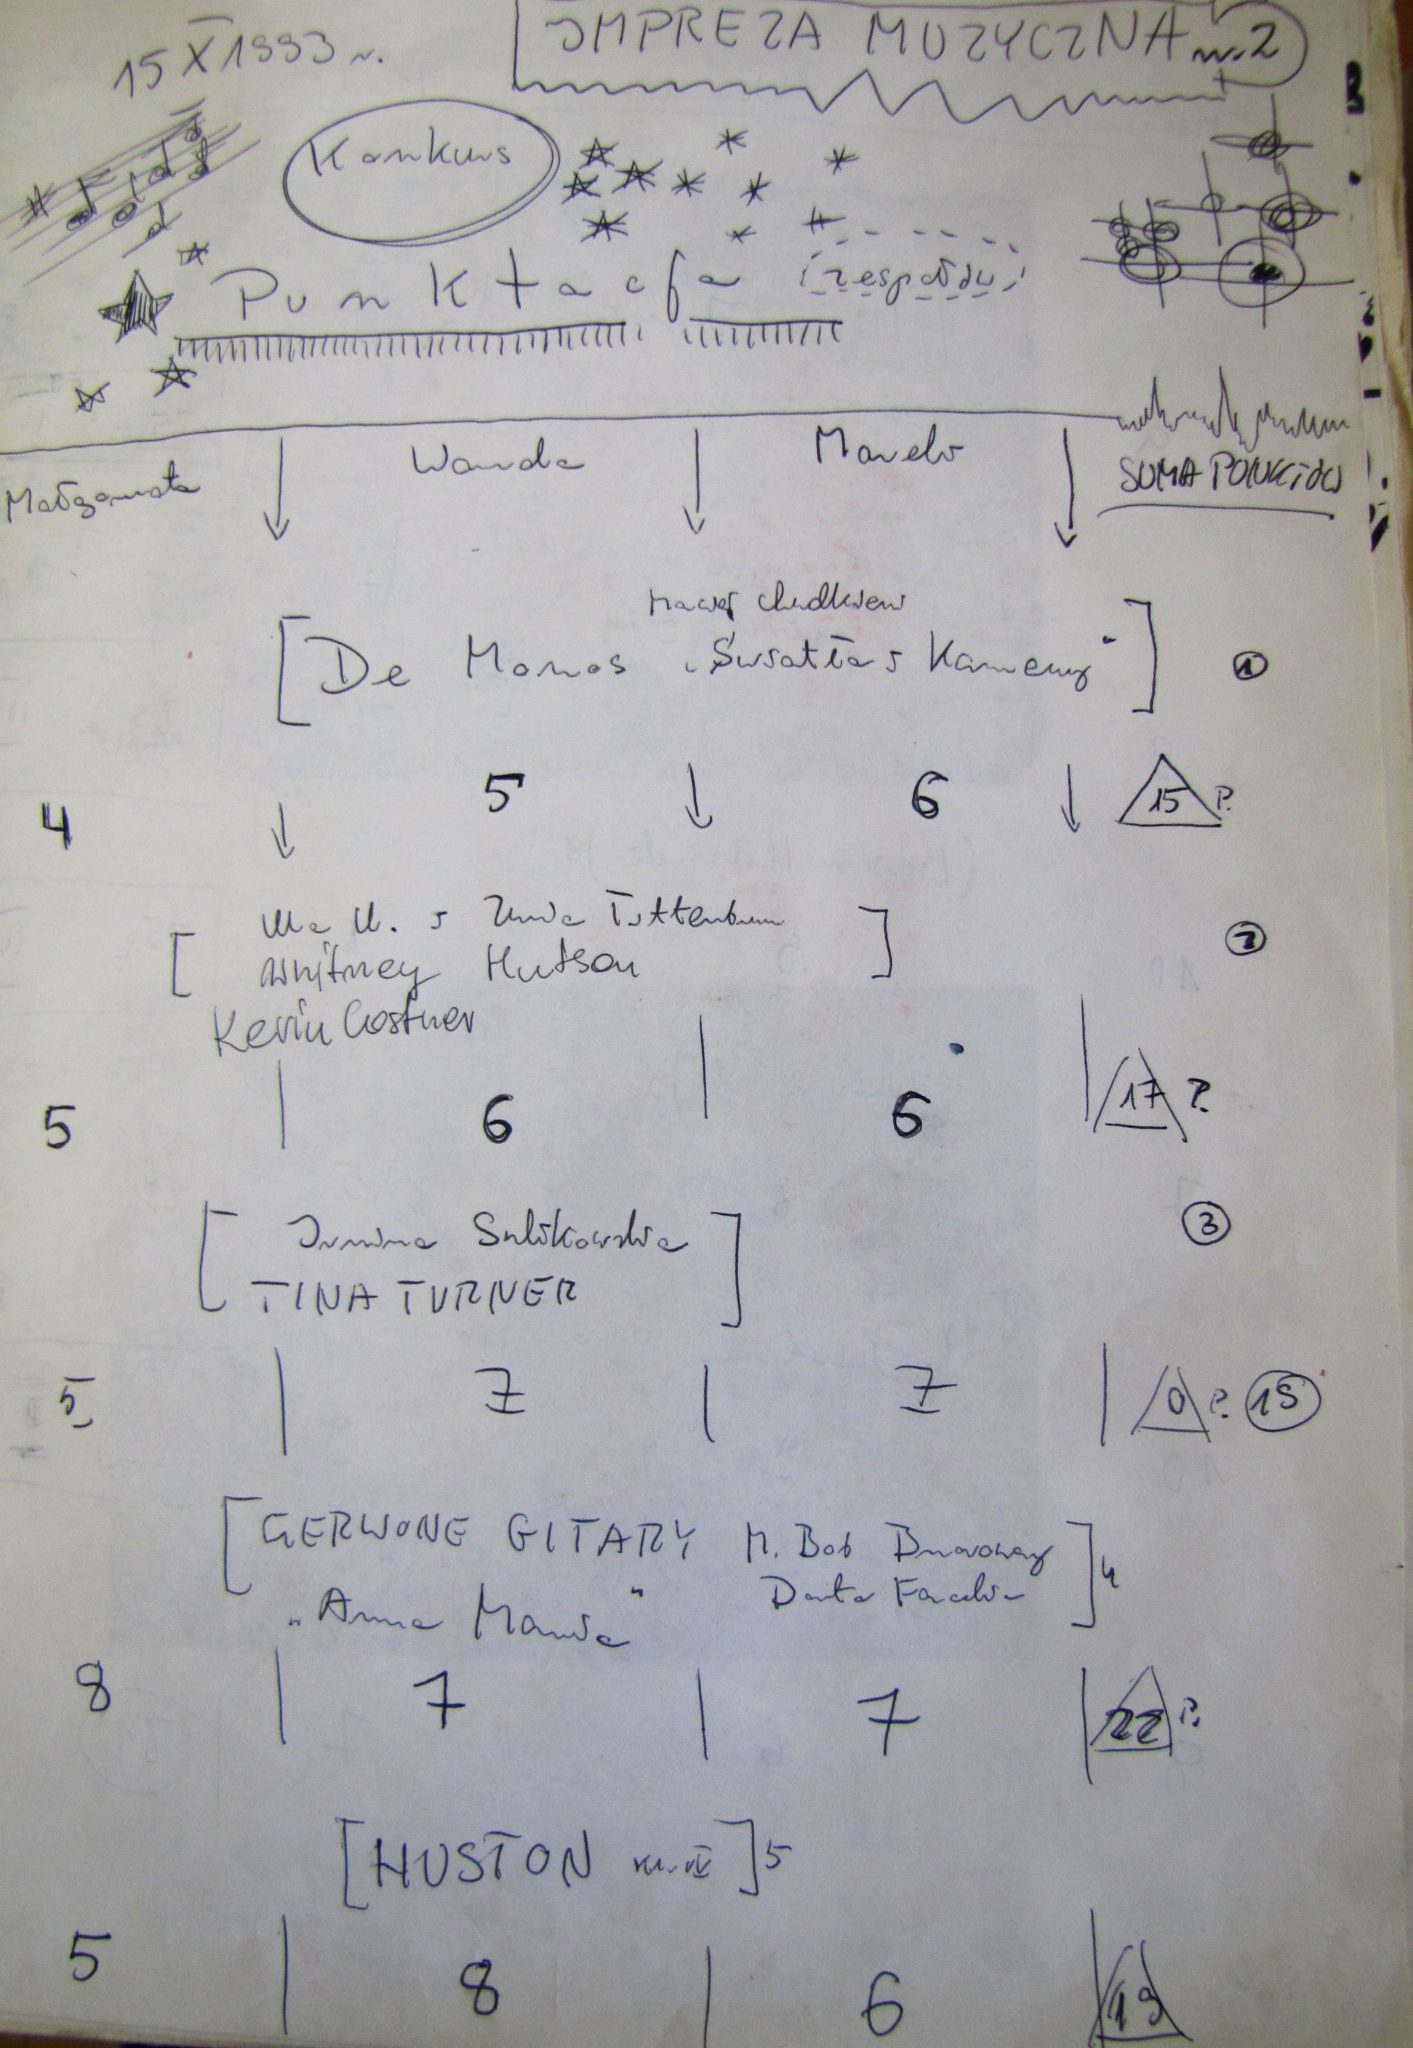 15 X 1993 r.
IMPREZA MUZYCZNA nr. 2
Konkurs
Punktacja zespołów
Małgorzata Wanda Marek SUMA PUNKTÓW
Maciej
De Monos „Światła i Kamery” 1
4 5 6 15 P.
i
Whitney Hutson 2
Kevin Costner
5 6 6 17 P.
Sulikowska 3
TINA TURNER
5 7 7 0 P. 19
CZERWONE GITARY M. Bob 4
„Anna Maria”
8 7 7 22 P.
HUSTON 5
5 8 6 19